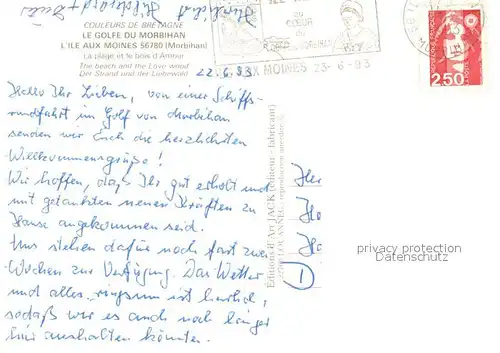 Herzlichst
COULEURS DE BRETAGNE
LE GOLFE DU MORBIHAN
L'ILE AUX MOINES 56780 (Morbihan)
La plage et le bois d'Amour
The beach and the Love wood
Der Strand und der Liebewald
AU
CŒUR
DU
MORBIHAN
AUX MOINES 23-6-93
2,50
22.6.93
Hallo Ihr Lieben, von einer Schiffs-
rundfahrt im Golf von Morbihan
senden wir Euch die herzlichsten
Willkommensgrüße!
Wir hoffen, daß Ihr gut erholt und
mit getankten neuen Kräften zu
Hause angekommen seid.
Uns stehen dafür noch fast zwei
Wochen zur Verfügung. Das Wetter
und alles ringsum ist herrlich,
sodaß wir es auch noch länger
hier aushalten könnten.
Editions d'Art JACK (éditeur - fabricant)
Her
Ho
Ha
D
privacy protection
Datenschutz